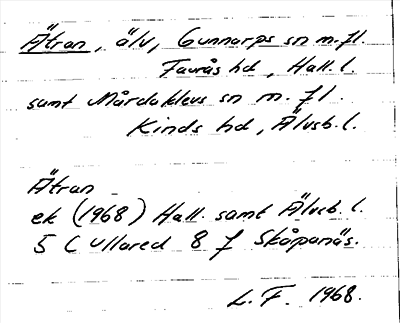 Ätran, älv, Gunnarps sn m. fl.
Faurås hd, Hall. l.
samt Mårdaklevs sn m. fl.
Kinds hd, Älvsb. l.
Ätran
ek (1968) Hall. samt Älvsb. l.
5 C Ullared 8 f Skåpanäs.
L. F. 1968.